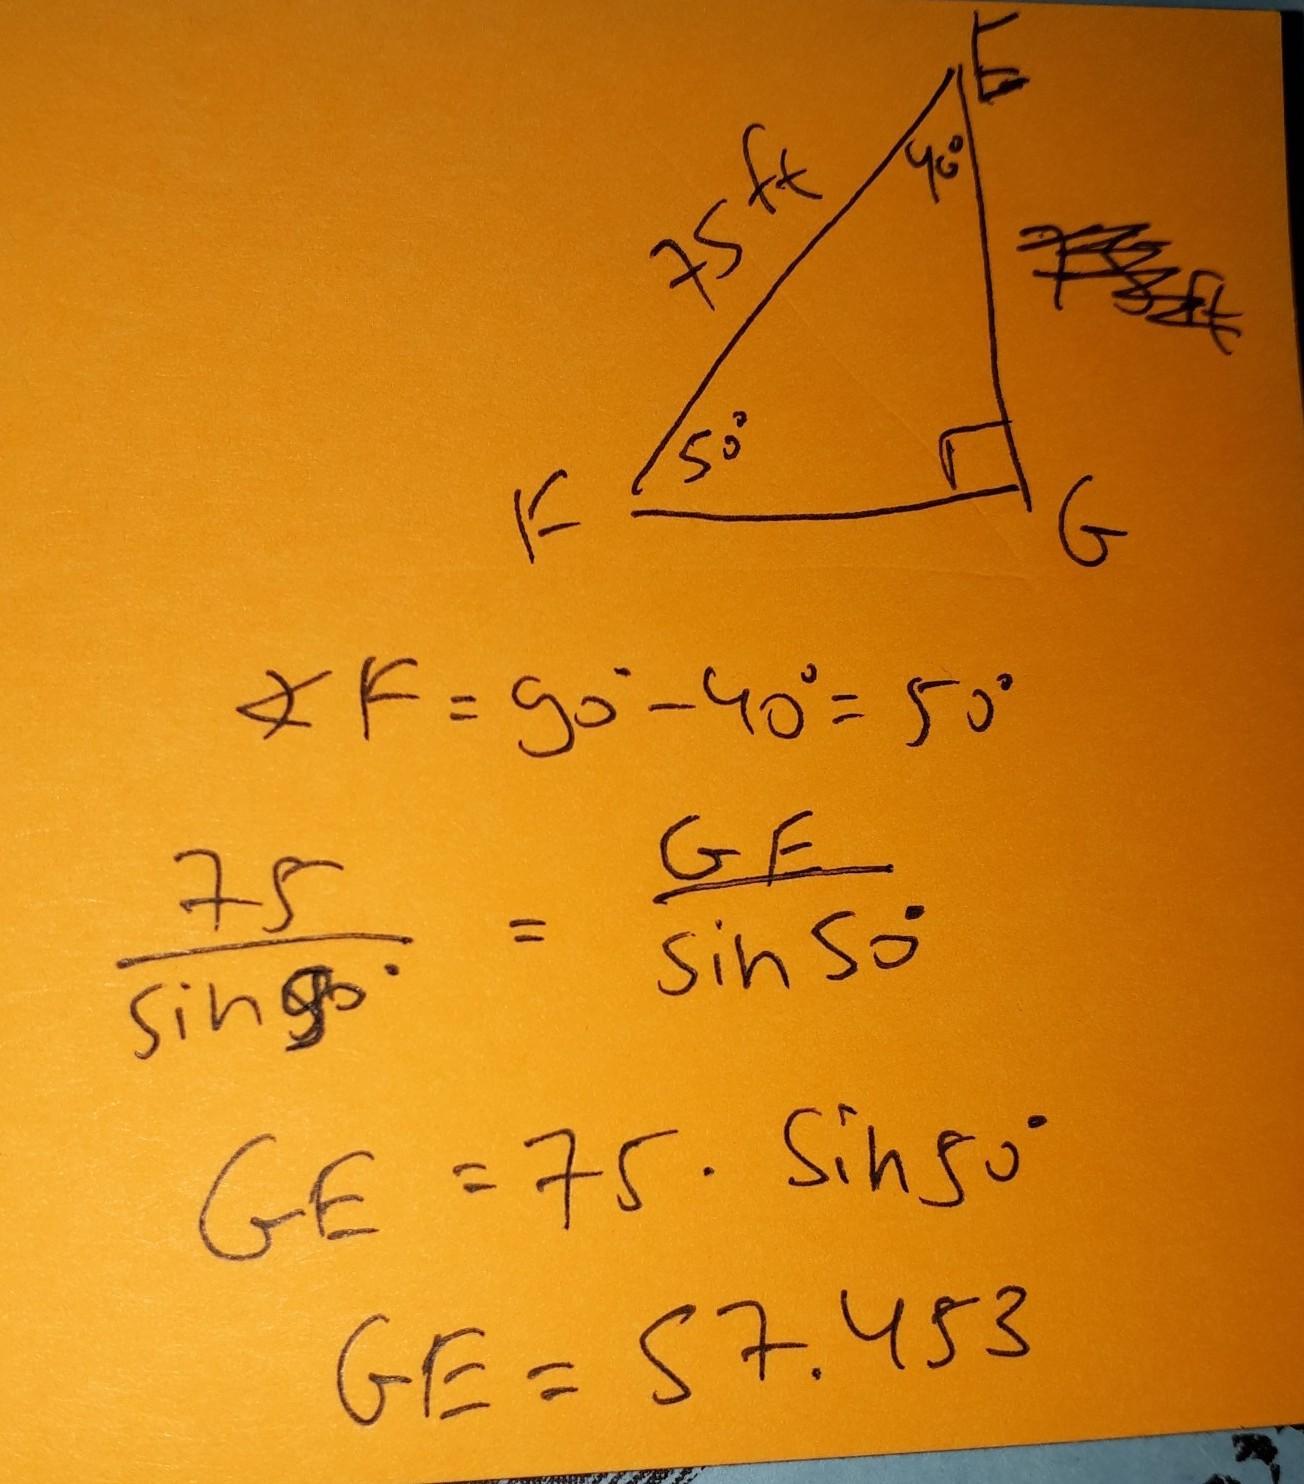 E
40°
75 ft
50°
F
G
∡F = 90° - 40° = 50°
75 / sin 90° = GE / sin 50°
GE = 75 · sin 50°
GE = 57.453